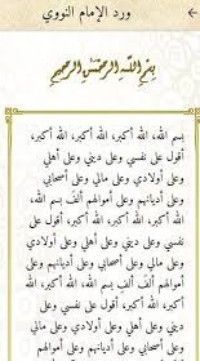 ورد الإمام النووي
بِسْمِ اللهِ الرَّحْمَنِ الرَّحِيمِ
بسم الله، الله أكبر، الله أكبر، الله أكبر،
أقول على نفسي وعلى ديني وعلى أهلي
وعلى أولادي وعلى مالي وعلى أصحابي
وعلى أديانهم وعلى أموالهم ألف بسم الله،
الله أكبر، الله أكبر، الله أكبر، أقول على
نفسي وعلى ديني وعلى أهلي وعلى أولادي
وعلى مالي وعلى أصحابي وعلى أديانهم وعلى
أموالهم ألف ألفِ بسم الله، الله أكبر، الله
أكبر، الله أكبر، أقول على نفسي وعلى
ديني وعلى أهلي وعلى أولادي وعلى مالي
وعلى أصحابي وعلى أديانهم وعلى أموالهم